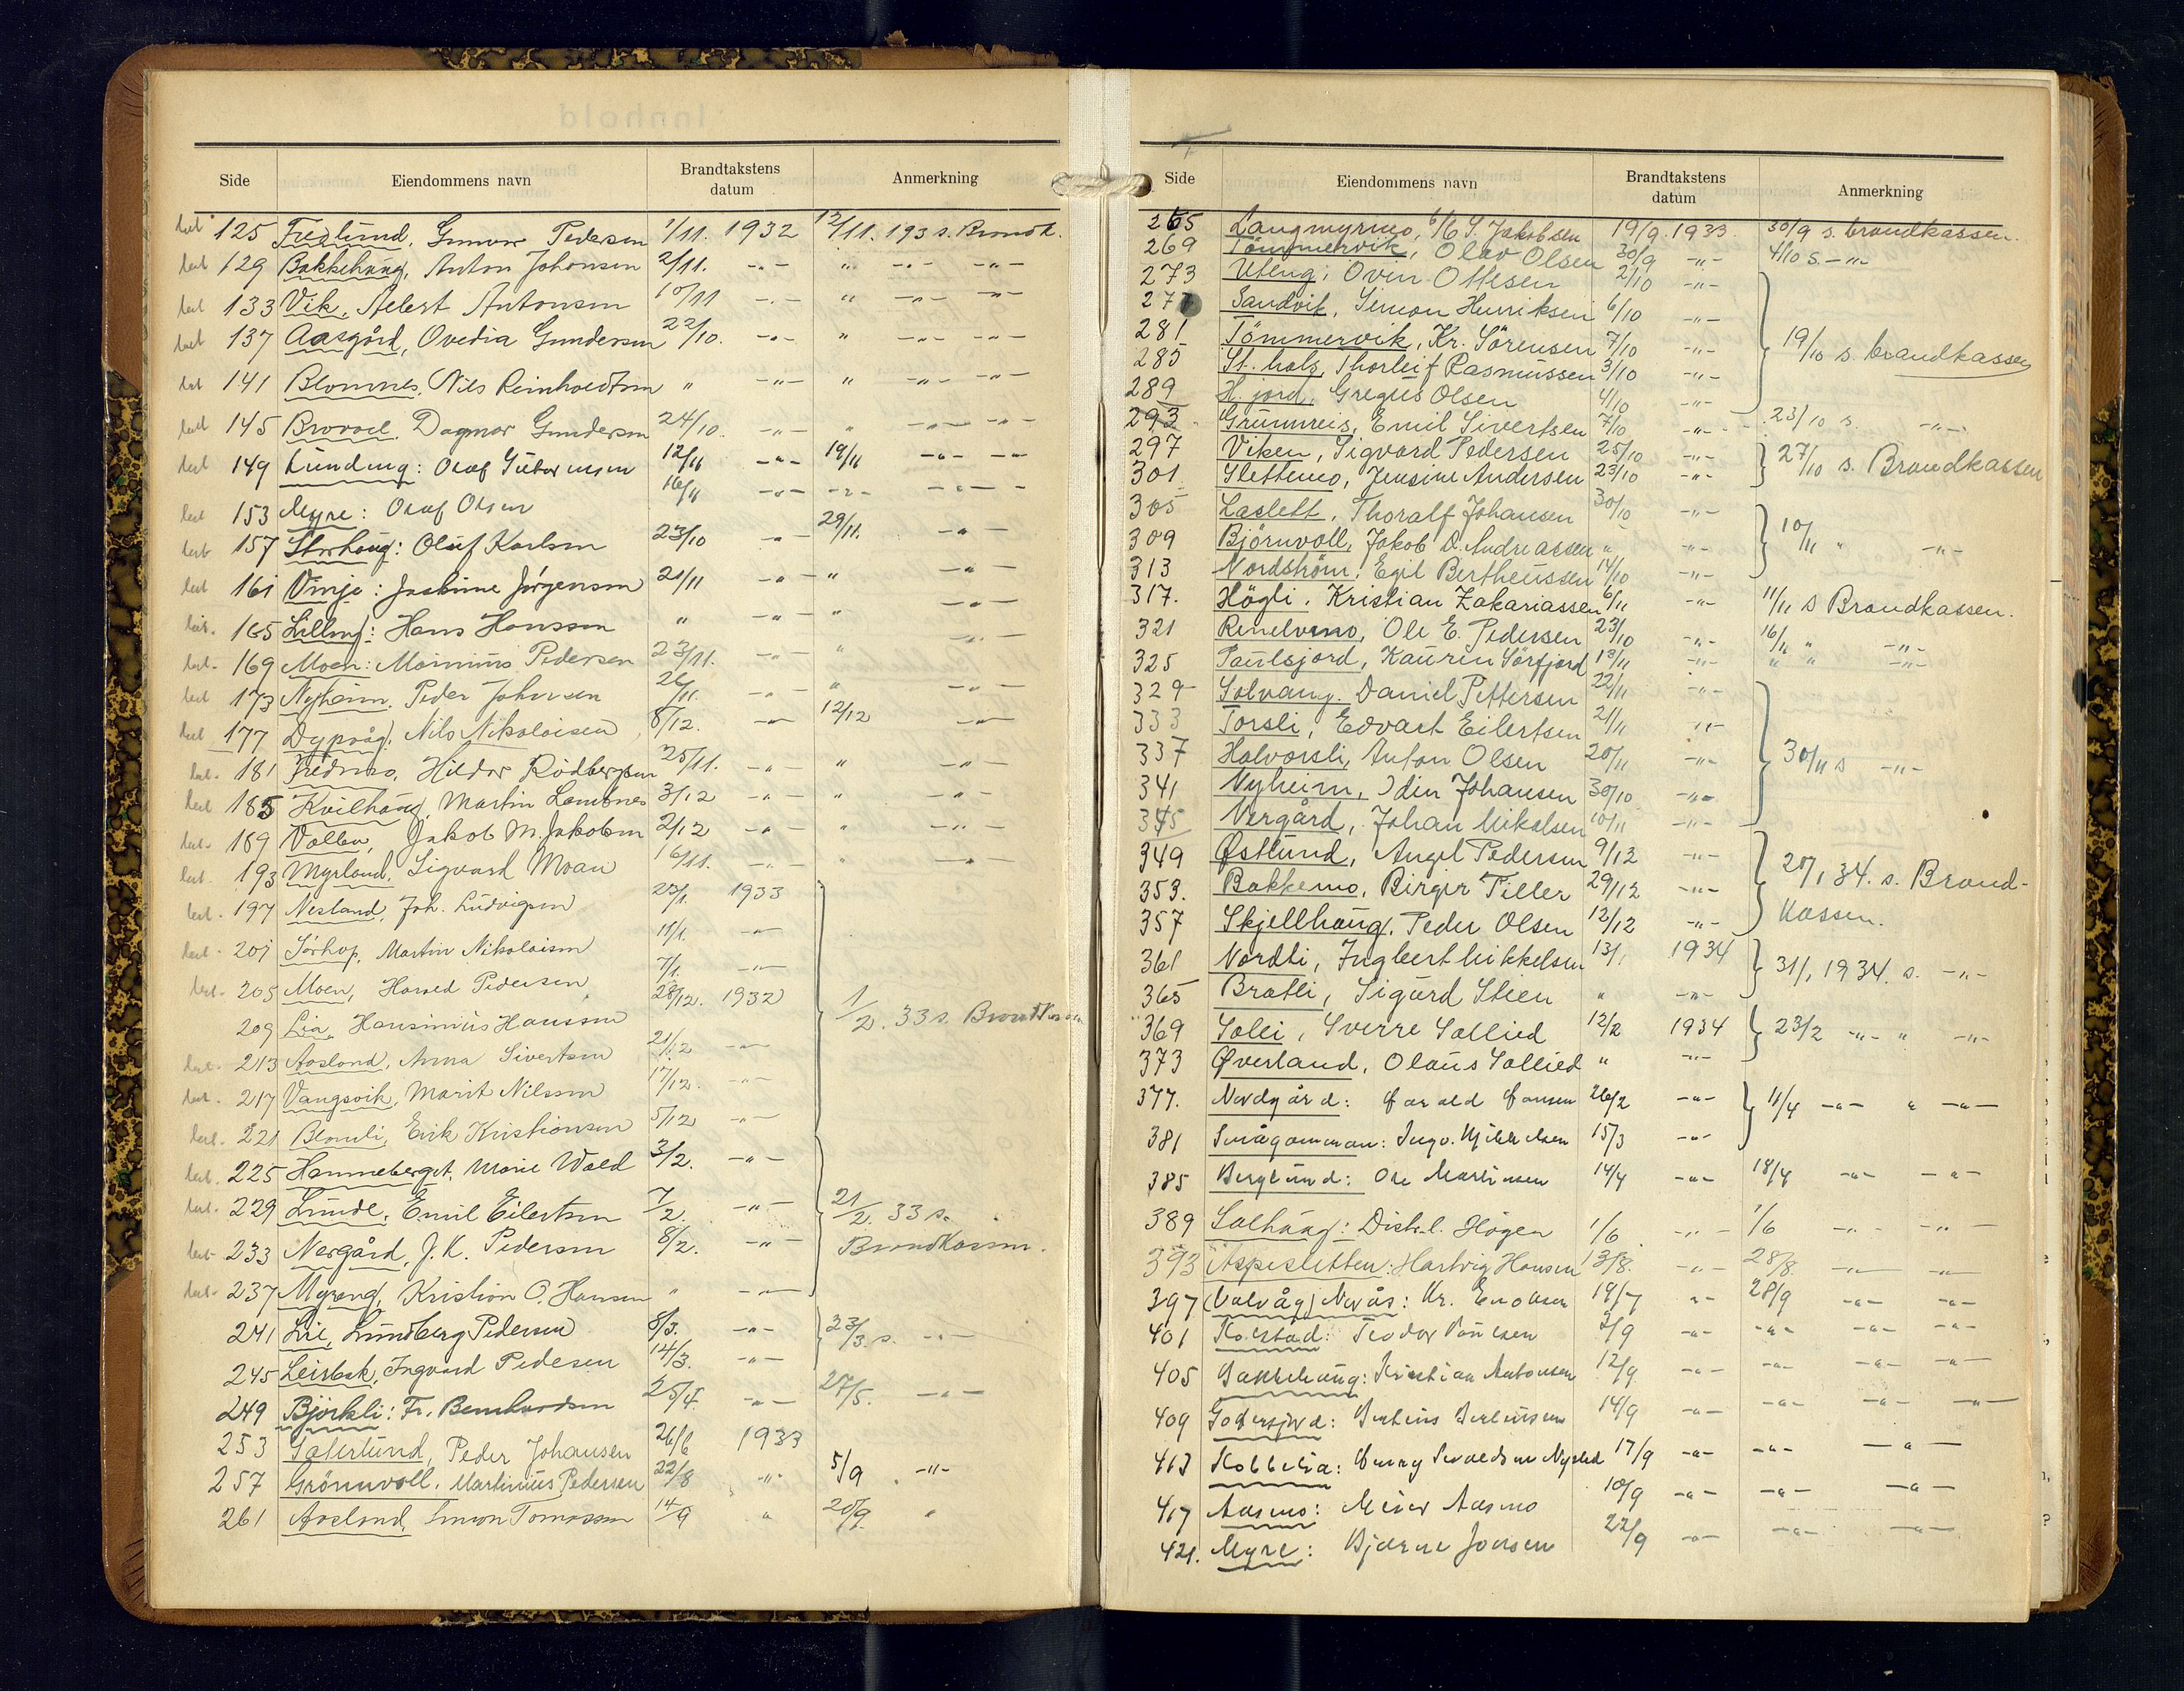 Side Eiendommens navn Brandtakstens datum Anmerkning
125 Fredlund, Gunvor Pedersen 1/11. 1932 12/11. 193 s. Brandk.
129 Bakkehaug, Anton Johansen 2/11. -"- " -"- -"-
133 Vik, Albert Antonsen 10/11 -"- " -"- -"-
137 Aasgård, Ovedia Gundersen 22/10. -"- " -"- -"-
141 Blomnes, Nils Reinholdtsen " -"- " -"- -"-
145 Brovoll, Dagmar Gundersen 24/10. -"- " -"- -"-
149 Lundeng: Olaf Gustavsen 12/11 -"- 19/11 -"- -"-
153 Myre: Olaf Olsen 16/11 -"- -"- -"-
157 Storhaug: Oluf Karlsen 23/10 -"- 29/11. -"-
161 Vinje: Jørgensen 21/11 -"- " -"-
165 Lilleng: Hans Hanssen " -"- " -"-
169 Moen: Pedersen 23/11. -"- " -"-
173 Nyheim, Peder Johnsen 26/11. -"- " -"-
177 Dypvåg, Nils Nikolaisen 8/12. -"- 12/12 -"-
181 Fredmo, Hildor Rödbergsen 25/11. -"- " -"-
185 Kvilhaug, Martin Lambnes 3/12 -"- " -"-
189 Vollen, Jakob M. Jakobsen 2/12 -"- " -"-
193 Myrland, Sigvard Moan 16/11. -"- " -"-
197 Nesland, Joh. Ludvigsen 27/1. 1933
201 Sørhop, Martin Nikolaisen 11/1. -"-
205 Moen, Harald Pedersen 7/1. -"-
209 Lia, Hansinius Hanssen 28/12. 1932 1/2. 33 s. Brandkassen
213 Aasland, Anna Sivertsen 21/12 -"-
217 Vangsvik, Marit Nilssen 17/12. -"-
221 Blomli, Erik Kristiansen 5/12 -"-
225 Hammeberget, Marie Wold 3/2. -"-
229 Lunde, Emil Eilertsen 7/2. -"- 21/2. 33 s.
233 Nergård, J. K. Pedersen 8/2. -"- Brandkassen.
237 Myreng, Kristian O. Hansen " -"-
241 Lie, Lundberg Pedersen 8/3. -"- 23/3 s. -"-
245 Leisbak, Ingvard Pedesen 14/3. -"-
249 Björkli: Fr. Bernhardsen 25/4. -"- 27/5. -"-
253 Saterlund, Peder Johansen 26/6 1933
257 Grönnvoll, Martinius Pedersen 22/8 -"- 5/9. -"-
261 Aasland, Simon Tomassen 14/9 " 20/9. "
Side Eiendommens navn Brandtakstens datum Anmerkning
265 Langmyrmo, S. Jakobsen 19/9. 1933. 30/9 s. brandkassen.
269 Tömmervik, Olav Olsen 30/9 -"- 4/10 s. -"-
273 Uteng, Ovin Ottesen 2/10 -"-
277 Sandvik, Simon Henriksen 6/10 -"-
281 Tömmervik, Kr. Sörensen 7/10 -"- 19/10 s. brandkassen
285 St. hals, Thorleif Rasmussen 3/10 -"-
289 H. jord, Gregus Olsen 4/10 -"-
293 Grunnreis, Emil Sivertsen 7/10 -"- 23/10 s. -"-
297 Viken, Sigvard Pedersen 25/10 -"- 27/10 s. Brandkassen
301 Slettmo, Jensine Andersen 23/10 -"-
305 Laslett, Thoralf Johansen 30/10 -"-
309 Björnvoll, Jakob D. Andreassen " -"- 10/11 " -"-
313 Nordström, Egil Bertheussen 14/10 -"-
317. Högli, Kristian Zakariassen 6/11 -"- 11/11 s Brandkassen.
321 Renelvmo, Ole E. Pedersen 23/10 -"- 16/11 " -"-
325 Paulsjord, Kauren Sörfjord 13/11 -"- " " -"-
329 Solvang, Daniel Pettersen 22/11 -"-
333 Torsli, Edvart Eilertsen 21/11 -"-
337 Halvorsli, Anton Olsen 20/11 -"- 30/11 s -"-
341 Nyheim, Odin Johansen 30/10 -"-
345 Vergård, Johan Mikalsen 10/11 -"-
349 Østlund, Angel Pedersen 9/12 -"-
353. Bakkemo, Birger Tiller 29/12 -"- 20/1 34. s. Brand-
357 Skjellhaug, Peder Olsen 12/12 -"- kassen.
361 Nordli, Ingbert Mikkelsen 13/1 1934 31/1 1934. s. -"-
365 Bratli, Sigurd Steen " -"-
369 Solli, Sverre Sollied 12/2 1934 23/2 -"- " -"-
373 Øverland, Olaus Sollied " -"-
377. Nordgård: Harald Hansen 26/2 -"- 11/4 -"- " -"-
381 Smågamman: Ingv. Mikkelsen 15/3 -"-
385 Berglund: Ole Martinsen 14/4 -"- 18/4 -"- -"-
389 Solhaug: Distr.l. Högen 1/6 -"- 1/6 -"- -"-
393 Aspesletten: Hartvig Hansen 13/8. -"- 28/8. -"- -"-
397 (Valvåg) Norås: Kr. Enoksen 19/7 -"- 28/9 -"- -"-
401 Kolstad: Teodor Paulsen 3/9 -"- -"- -"- -"-
405 Bakkehaug: Kristian Antonsen 12/9 -"- -"- -"- -"-
409 14/9 -"- -"- -"- -"-
413 17/9 -"- -"- -"-
417 Aasmo: Meier Aasmo 10/9 -"- -"- -"-
421. Myre: Bjarne Jonsen 22/9 -"- -"- -"-